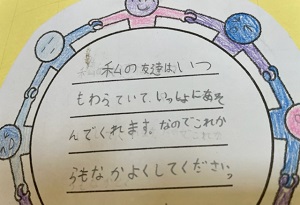 私の友達は、いつ
もわらていて、いっしょにあそ
んでくれます。なのでこれか
らもなかよくしてくださいっ